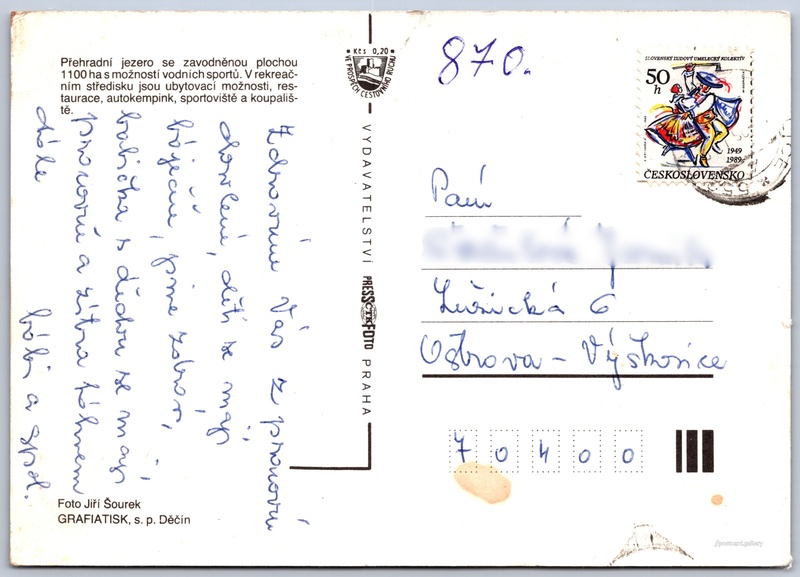 Přehradní jezero se zavodněnou plochou
1100 ha s možností vodních sportů. V rekreač-
ním středisku jsou ubytovací možnosti, res-
taurace, autokempink, sportoviště a koupališ-
tě.
Zdravíme Vás z pracovní
dovolené, děti se mají
báječně, jsme zdrávi,
babička s dědou se mají
pracovně a zítra táhnem
dále
a spol.
Foto Jiří Šourek
GRAFIATISK, s. p. Děčín
Kčs 0,20
VE PROSPĚCH CESTOVNÍHO RUCHU
VYDAVATELSTVÍ PRESSFOTO PRAHA
ČTK
870.
SLOVENSKÝ ĽUDOVÝ UMELECKÝ KOLEKTÍV
50
h
1949
1989
ČESKOSLOVENSKO
Paní
Lužická 6
Ostrava - Výškovice
70400
postcard.gallery